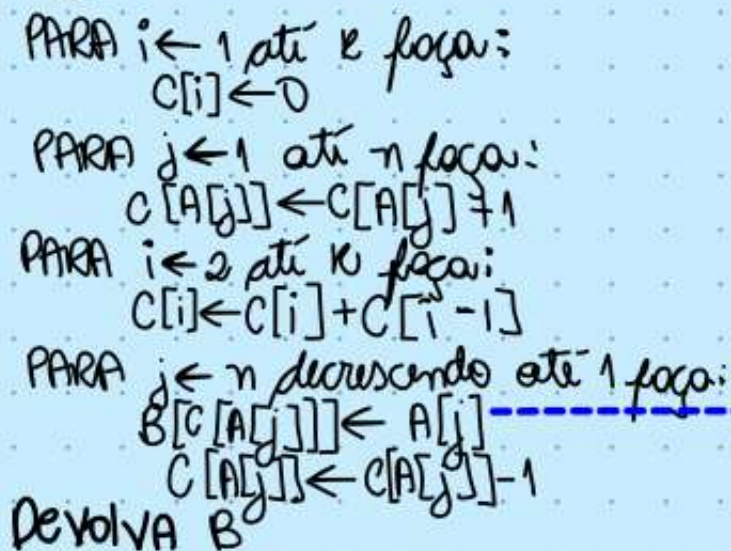 PARA i ← 1 até k faça:
C[i] ← 0
PARA j ← 1 até n faça:
C[A[j]] ← C[A[j]+1
PARA i ← 2 até k faça:
C[i] ← C[i] + C[i-1]
PARA j ← n decrescendo até 1 faça:
B[C[A[j]]] ← A[j]
C[A[j]] ← C[A[j]]-1
DEVOLVA B